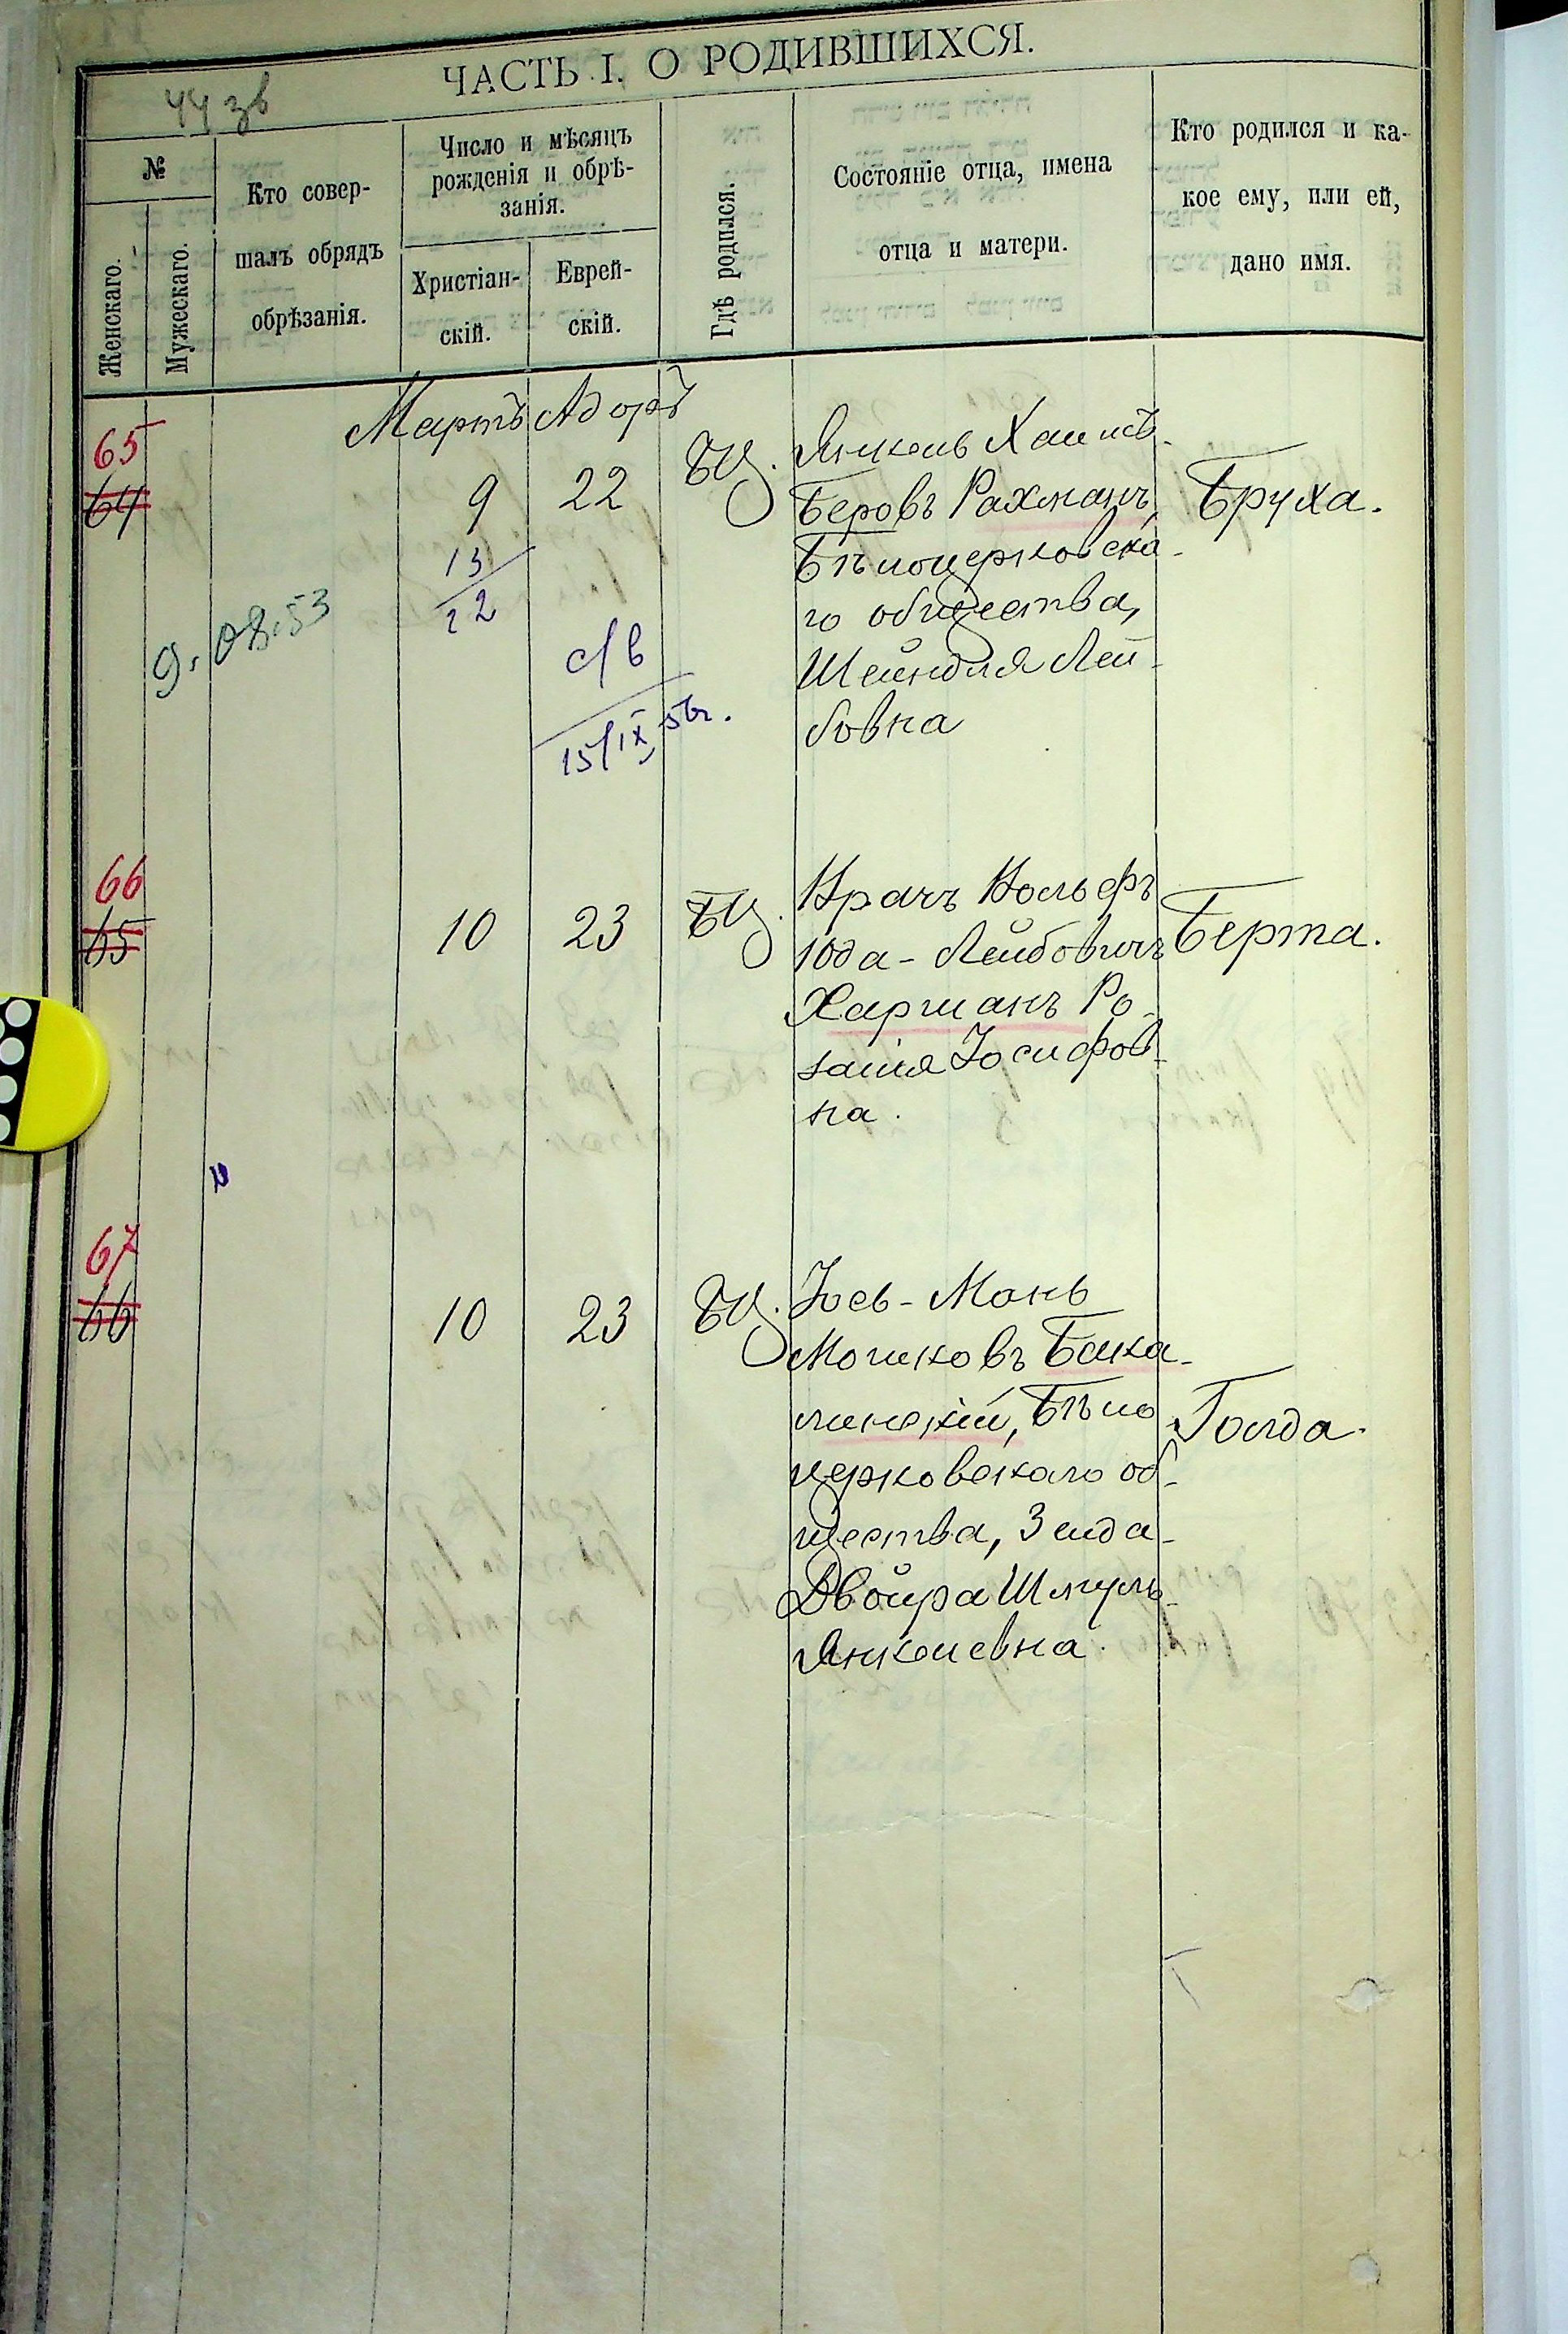 ЧАСТЬ I. О РОДИВШИХСЯ.
44 зв
№
Женскаго.
Мужескаго.
Кто совер-
шалъ обрядъ
обрѣзанія.
Число и мѣсяцъ
рожденія и обрѣ-
занія.
Христіан-
скій.
Еврей-
скій.
Гдѣ родился.
Состояніе отца, имена
отца и матери.
Кто родился и ка-
кое ему, или ей,
дано имя.
Мартъ Адаръ
65
64
9
22
БЦ.
Янкель Хаимъ-
Беровъ Рахманъ,
Бѣлоцерковска-
го общества,
Шейндля Лей-
бовна
Бруха.
13
22
с/в
15/IX
66
65
10
23
БЦ.
Врачъ Вольфъ
Юда-Лейбовичъ
Харшанъ Ро-
залія Іосифов-
на.
Берта.
67
66
10
23
БЦ.
Іось-Мань
Мошковъ Бака-
линскій, Бѣло
церковскаго об-
щества, Зисда-
Двойра Шмуль-
Янкелевна.
Голда.